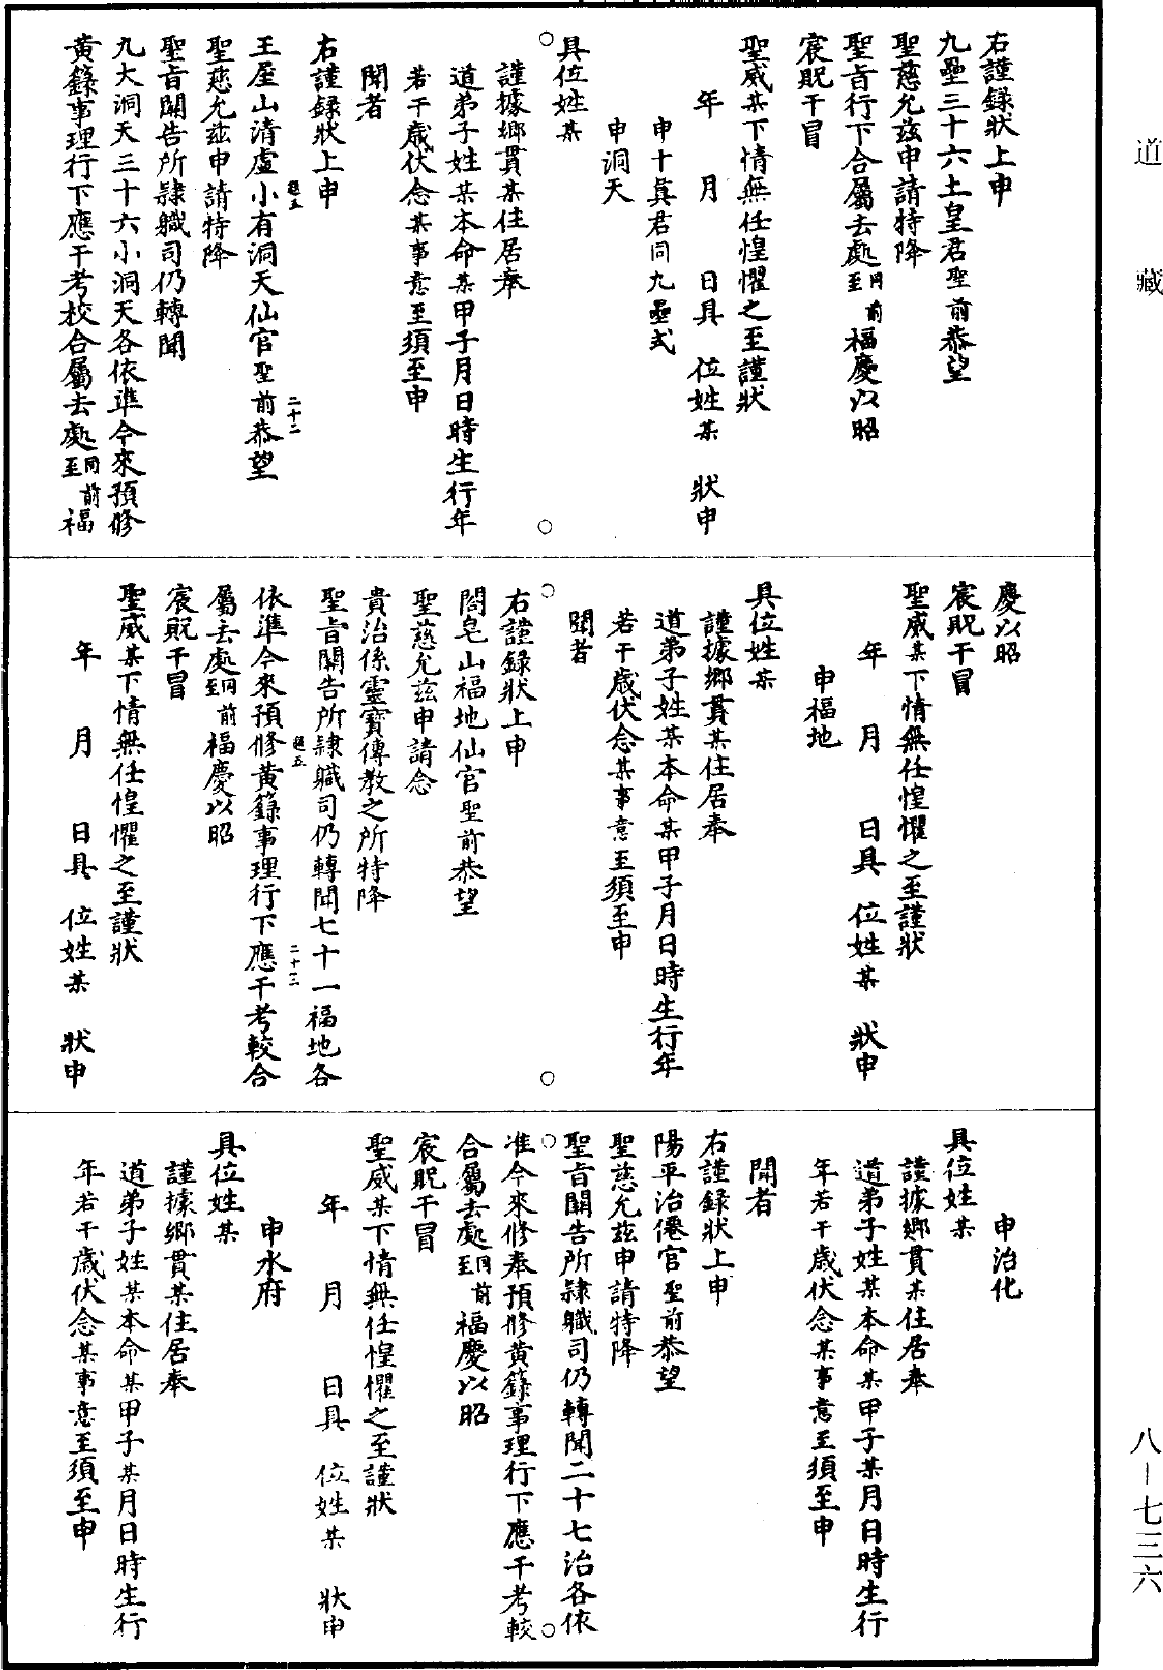 道藏
八—七三六
右謹錄狀上申
九壘三十六土皇君聖前恭望
聖慈允茲申請特降
聖旨行下合屬去處同前至福慶以昭
宸貺干冒
聖威某下情無任惶懼之至謹狀
年　月　日具　位姓某　狀申
申十眞君同九壘式
申洞天
具位姓某
謹據鄉貫某住居奉
道弟子姓某本命某甲子月日時生行年
若干歲伏念某事意至須至申
聞者
右謹錄狀上申
王屋山清虛小有洞天仙官聖前恭望
聖慈允茲申請特降
聖旨關告所隸職司仍轉聞
九大洞天三十六小洞天各依準今來預修
黃籙事理行下應干考校合屬去處同前至福
慶以昭
宸貺干冒
聖威某下情無任惶懼之至謹狀
年　月　日具　位姓某　狀申
申福地
具位姓某
謹據鄉貫某住居奉
道弟子姓某本命某甲子月日時生行年
若干歲伏念某事意至須至申
聞者
右謹錄狀上申
閤皂山福地仙官聖前恭望
聖慈允茲申請念
貴治係靈寶傳教之所特降
聖旨關告所隸職司仍轉聞七十一福地各
依準今來預修黃籙事理行下應干考較合
屬去處同前至福慶以昭
宸貺干冒
聖威某下情無任惶懼之至謹狀
年　月　日具　位姓某　狀申
申治化
具位姓某
謹據鄉貫某住居奉
道弟子姓某本命某甲子某月日時生行
年若干歲伏念某事意至須至申
聞者
右謹錄狀上申
陽平治僊官聖前恭望
聖慈允茲申請特降
聖旨關告所隸職司仍轉聞二十七治各依
准今來修奉預修黃籙事理行下應干考較
合屬去處同前至福慶以昭
宸貺干冒
聖威某下情無任惶懼之至謹狀
年　月　日具　位姓某　狀申
申水府
具位姓某
謹據鄉貫某住居奉
道弟子姓某本命某甲子某月日時生行
年若干歲伏念某事意至須至申
二十二
二十三